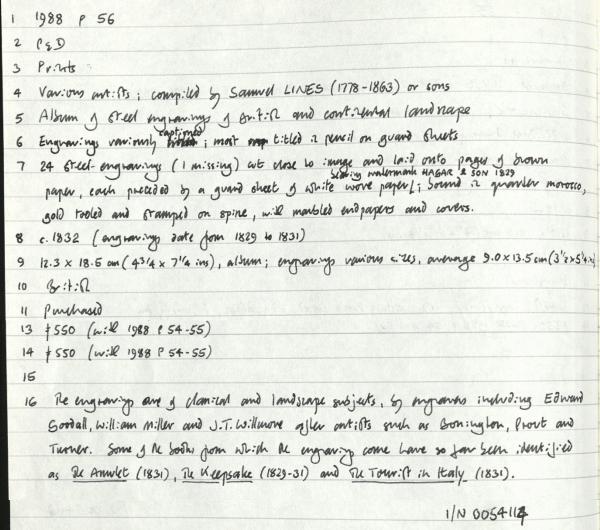 1 1988 P 56
2 P&D
3 Prints
4 Various artists; compiled by Samuel LINES (1778-1863) or sons
5 Album of steel engravings of British and continental landscape
captioned
6 Engravings variously ; most titled in pencil on guard sheets
7 24 steel-engravings (1 missing) cut close to image and laid onto pages of brown
bearing watermark HAGAR & SON 1829
paper, each preceded by a guard sheet of white wove paper[; bound in quarter morocco,
gold tooled and stamped on spine, with marbled endpapers and covers.
8 c. 1832 (engravings date from 1829 to 1831)
9 12.3 x 18.5 cm (4 3/4 x 7 1/4 ins), album; engravings various sizes, average 9.0 x 13.5 cm (3 1/2 x 5 1/4 ins)
10 British
11 Purchased
13 £550 (with 1988 P 54-55)
14 £550 (with 1988 P 54-55)
15
16 The engravings are of classical and landscape subjects, by engravers including Edward
Goodall, William Miller and J.T. Willmore after artists such as Bonington, Prout and
Turner. Some of the books from which the engravings come have so far been identified
as The Amulet (1831), The Keepsake (1829-31) and The Tourist in Italy (1831).
I/N 0054114